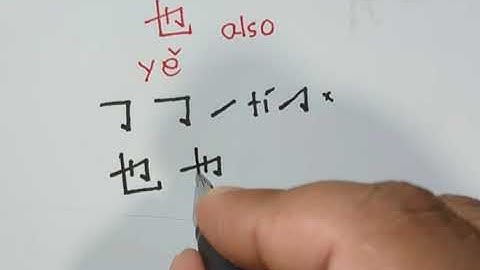 也 also
yě
𠃌 𠃌 ㇀ tí ㇆ ×
也 也